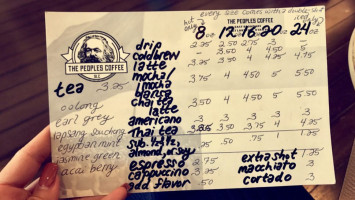 every size comes with a double shot
hot only
THE PEOPLES COFFEE
8 12 16 20 24
THE PEOPLES COFFEE
LLC
drip 2.25 2.50 2.75 3
coldbrew 3.50 4 4.50 5
latte 3.25 3.50 4 4.25 4.75
mocha/
mocha 3.75 4 4.50 5 5.50
tea 3.25
chai tea
latte 3.50 4 4.50 5 5.50
oolong
earl grey
americano 3 3 3 3
lapsang souchong
Thai tea 3.50 3.75 4 4.25
egyptian mint
sub: 1/2 1/2,
almond, or soy .50 .75 1 1.25
jasmine green
espresso 2.75
extra shot 1.25
acai berry
cappuccino 3.25
macchiato 3
add flavor .50
cortado 3